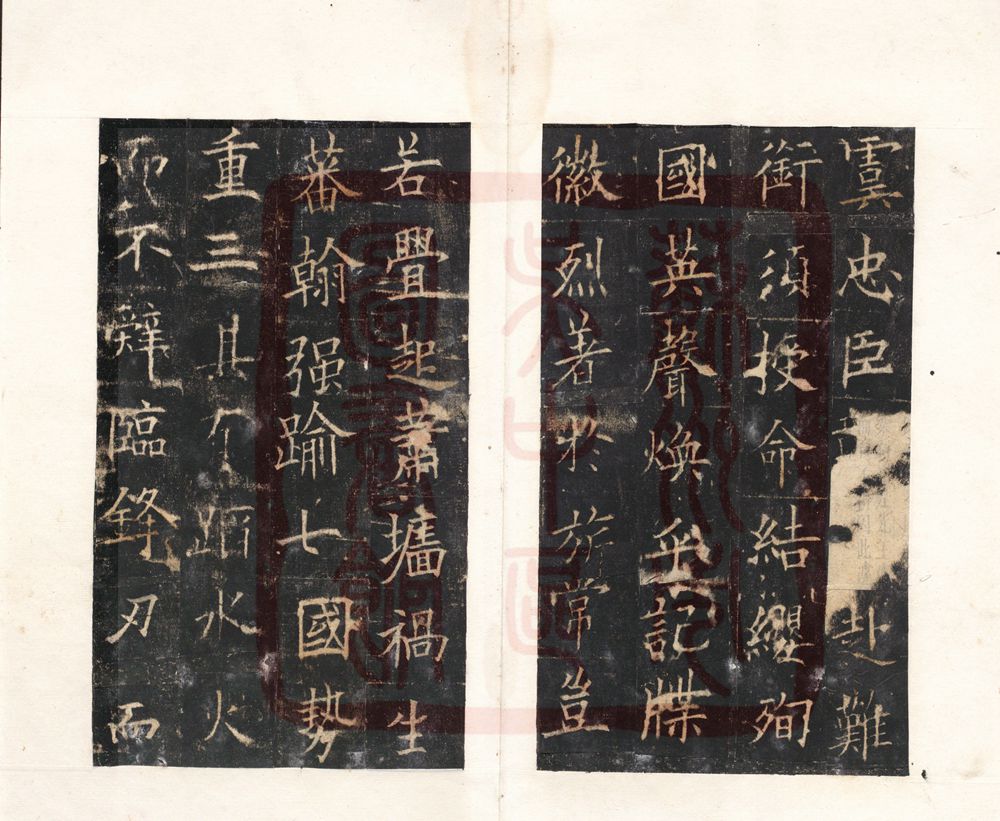 虞忠臣赴難
銜須授命結纓殉
國英聲煥乎記牒
徽烈著於旂常豈
若釁起蕭墻禍生
蕃翰强踰七國勢
重三蹈水火
而不辭臨鋒刃而